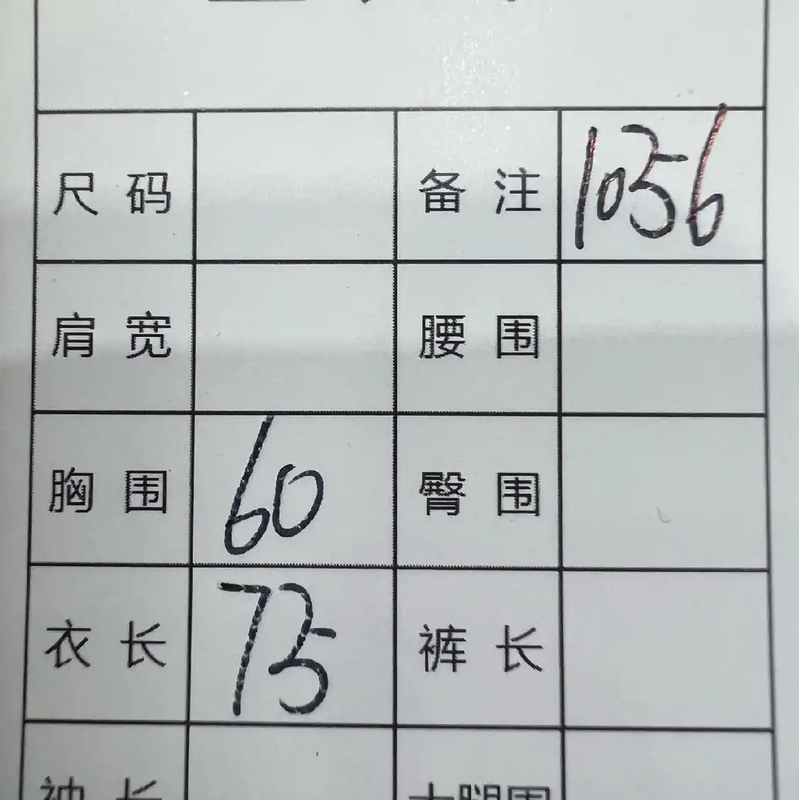 尺码 备注 1056
肩宽 腰围
胸围 60 臀围
衣长 75 裤长